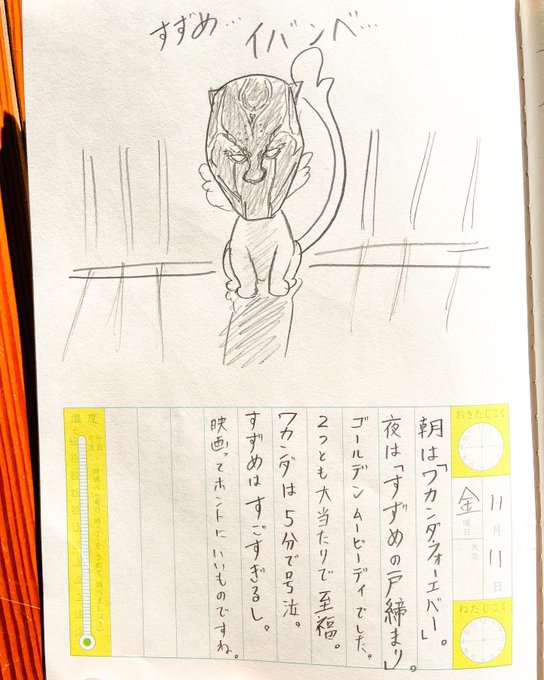 すずめ… イバンベ…
おきたじこく
11月11日
金曜日
天気
ねたじこく
朝は「ワカンダフォーエバー」。
夜は「すずめの戸締まり」。
ゴールデンムービーディでした。
2つとも大当たりで至福。
ワカンダは5分で号泣。
すずめはすごすぎるし。
映画ってホントにいいものですね。
温度
午前
午後